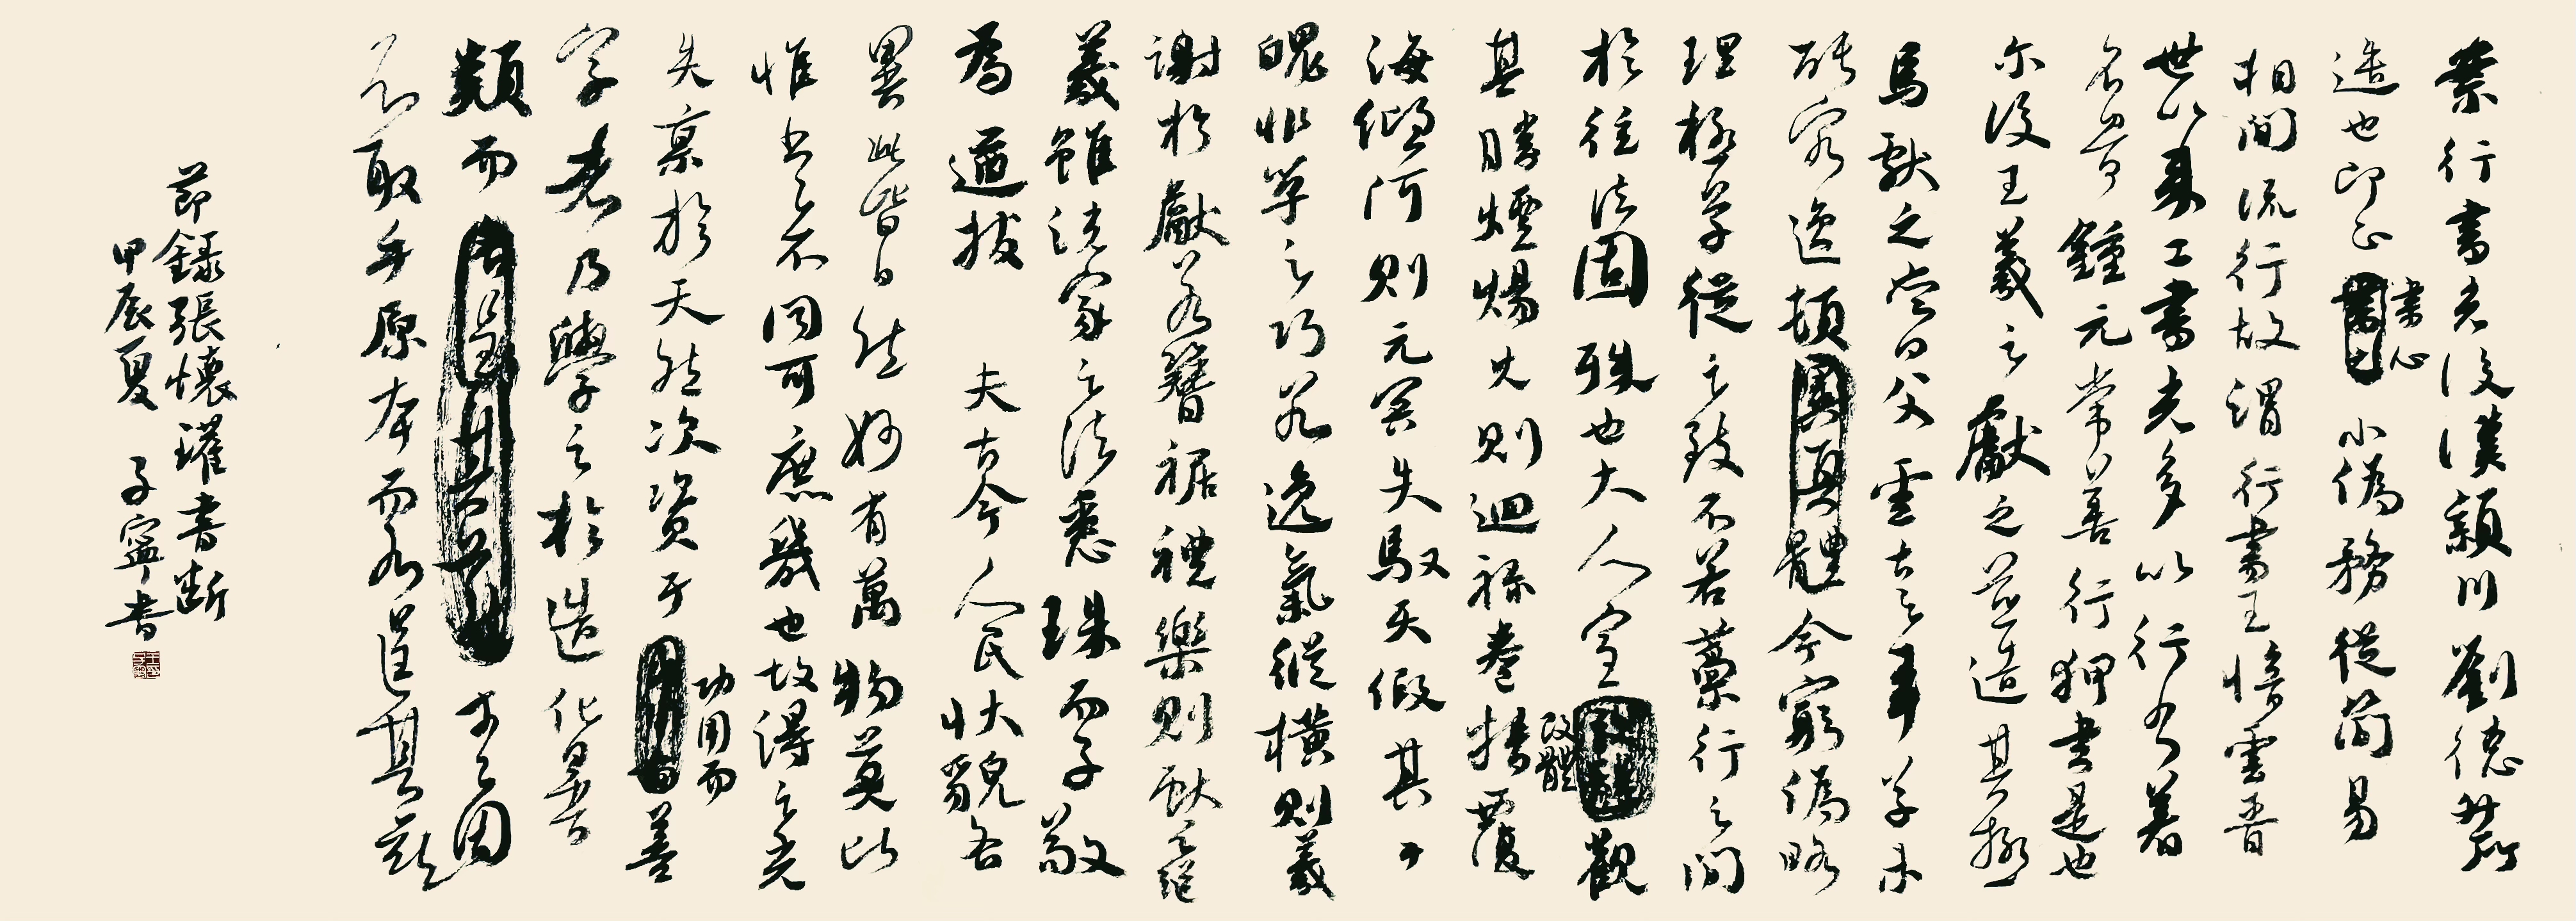 案行書者後漢潁川劉德昇所
造也即正書之小偽務從簡易
書心
相間流行故謂行書王愔雲晉
世以來工書者多以行書著
名昔鍾元常善行狎書是也
爾後王羲之獻之並造其極
焉獻之嘗白父雲古之章草未
能宏逸頓異真體今窮偽略
理極草從之致不若藁行之間
於往法固殊也大人宜改體觀
改體
其騰煙煬火則迴祿卷揚覆
海傾河則元冥失馭天假其
魄非學之巧若逸氣縱橫則羲
謝於獻若簪裾禮樂則獻不繼
羲雖諸家之法悉殊而子敬
為遒拔 夫古今人民狀貌各
異此皆自然妙有萬物莫比
惟書之不同可庶幾也故得之者
先稟於天然次資于功用而善
功用而
字者乃學之於造化異書
類而求之固
不取乎原本而各逞其欲
節錄張懷瓘書斷
甲辰夏 子寧書